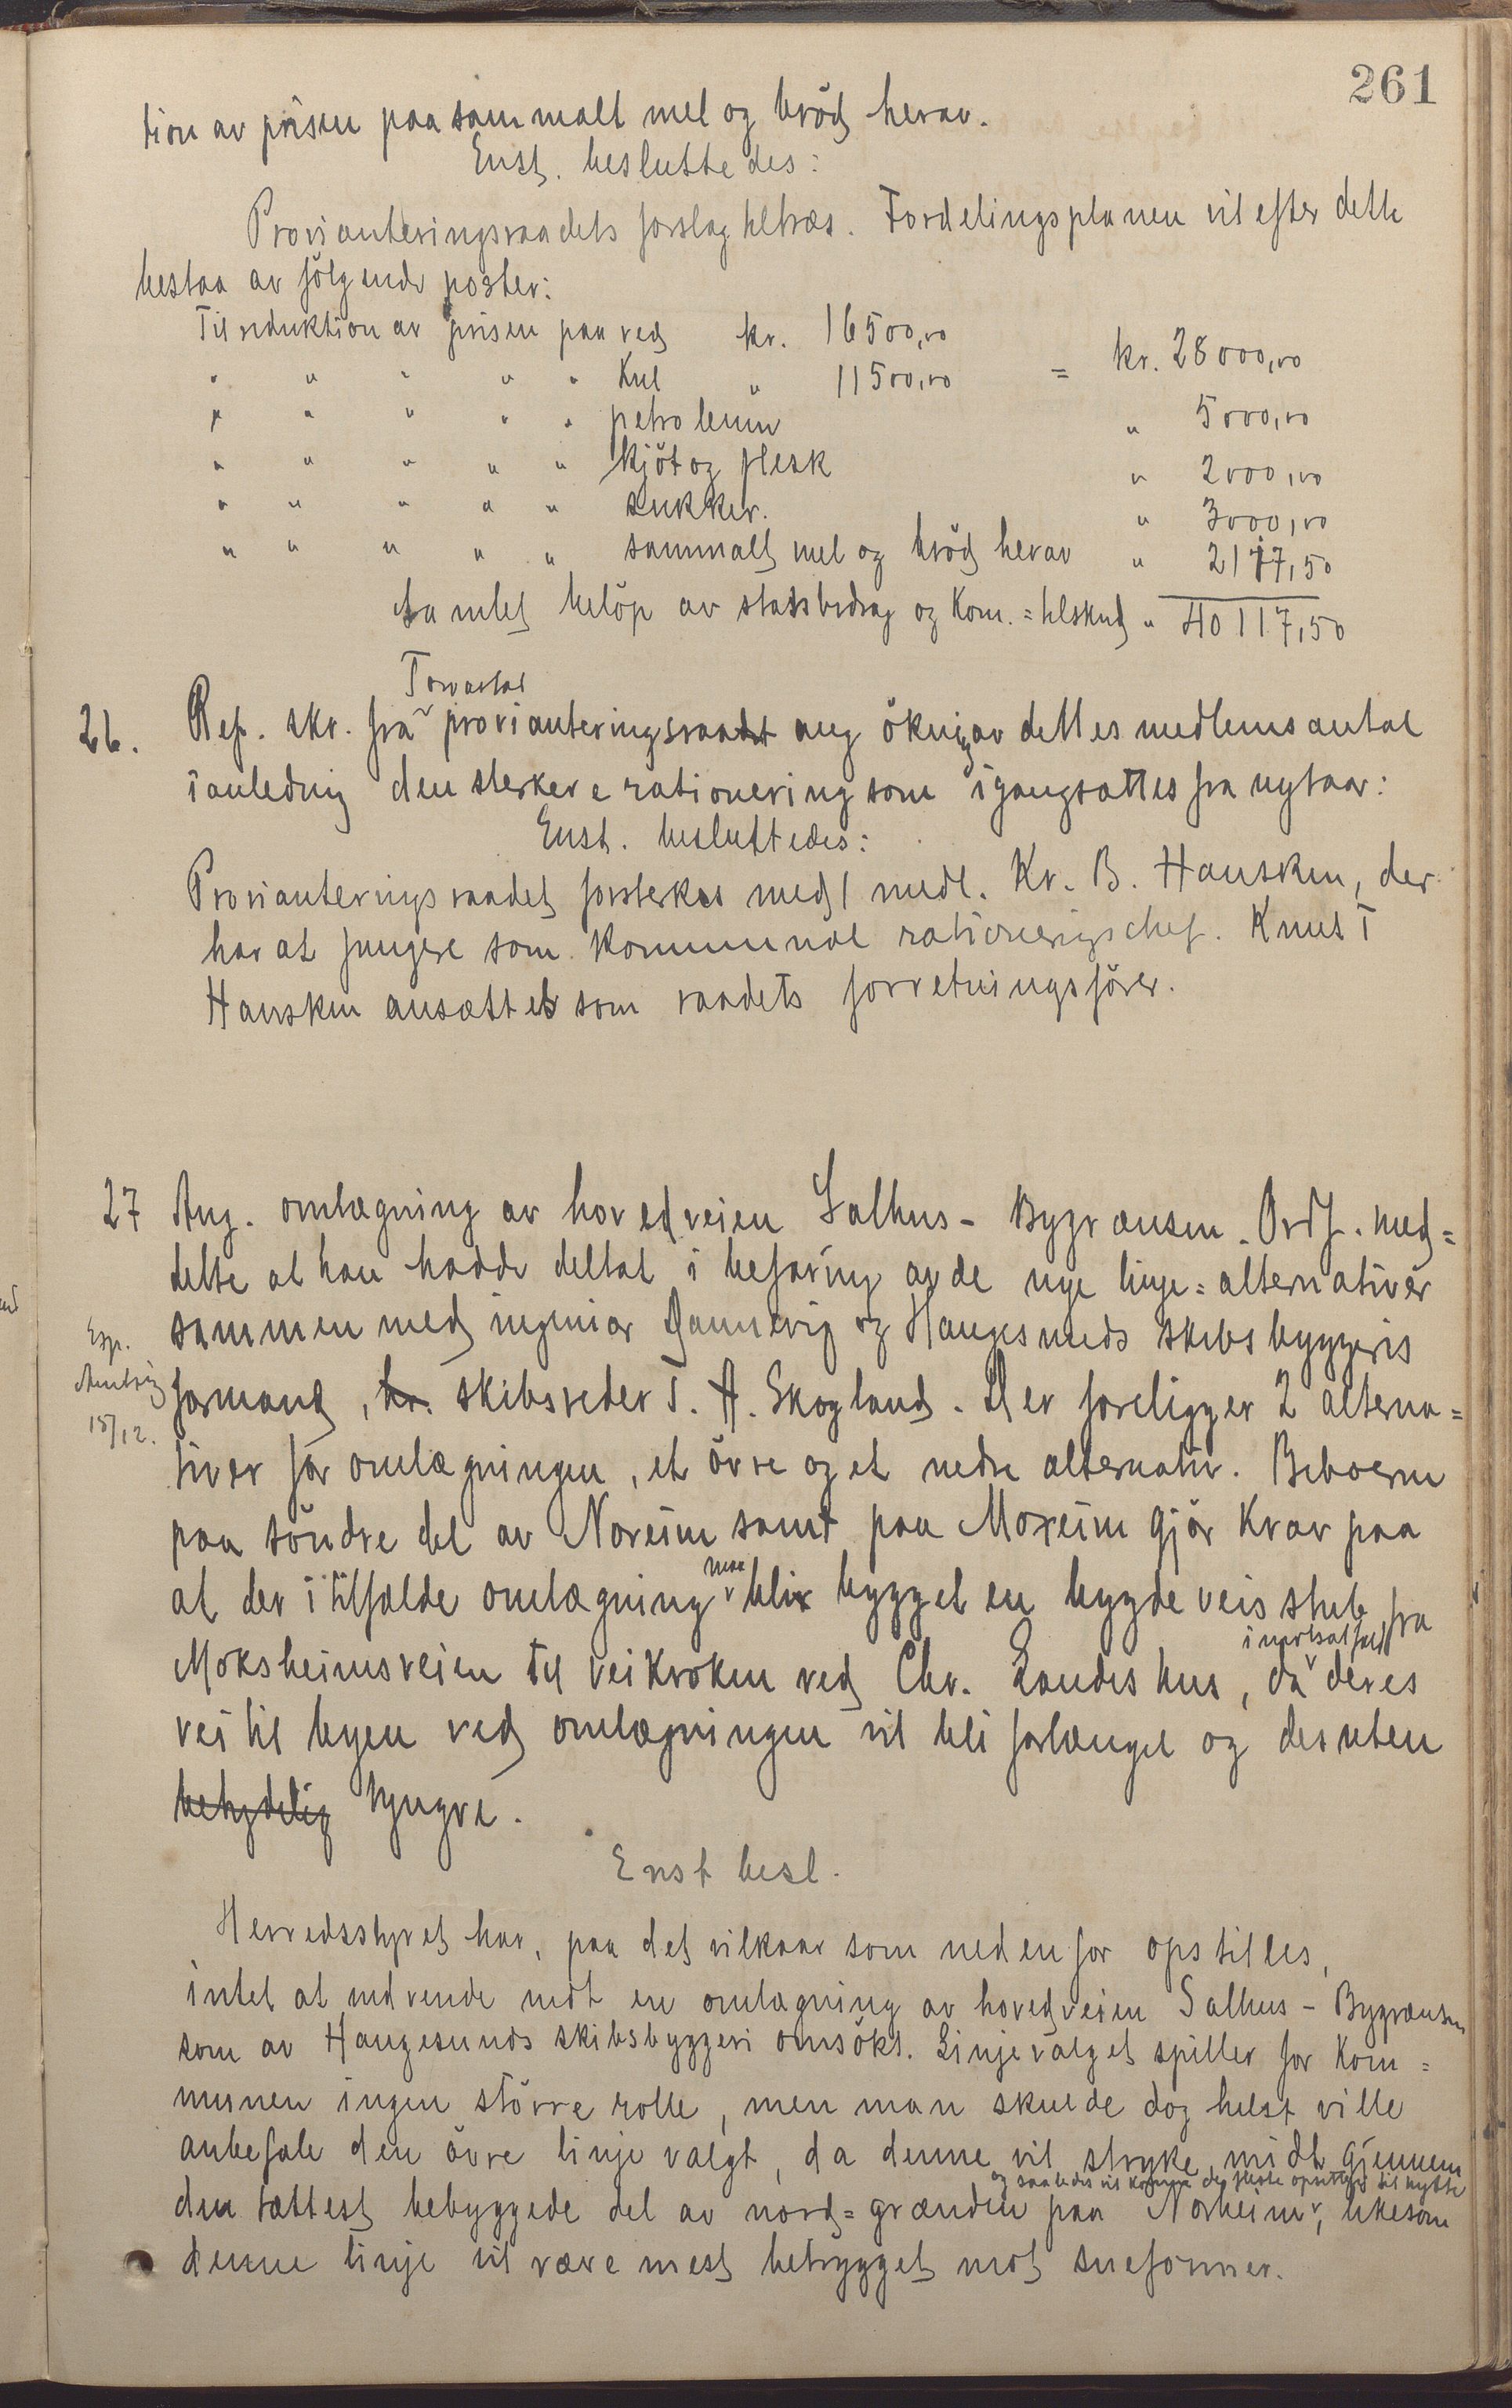 261
tion av prisen paa sammalt mel og bröd herav.
Enst. besluttedes:
Provianteringsraadets forslag tiltræs. Fordelingsplanen vil efter dette
bestaa av fölgende poster:
Til reduktion av prisen paa ved kr. 16500,00
" " " " " Kul " 11500,00 = kr. 28000,00
" " " " " petroleum " 5000,00
" " " " " kjöt og flesk " 2000,00
" " " " " sukker. " 3000,00
" " " " " sammalt mel og bröd herav " 2117,50
Samlet belöp av statsbidrag og Kom.=tilskud " 40117,50
26. Ref. skr. fra Torvastad provianteringsraad ang ökning av dettes medlemsantal
i anledning den sterkere rationering som igangsættes fra nytaar:
Enst. besluttedes:
Provianteringsraadet forsterkes med 1 medl. Kr. B. Hausken, der
har at fungere som kommunal rationeringschef. Knut T
Hausken ansættes som raadets forretningsförer.
27 Ang. omlægning av hovedveien Salhus - Bygrænsen. Ordf. med=
delte at han hadde deltat i befaring av de nye linje=alternativer
sammen med ingeniör Dannevig og Haugesunds skibsbyggeris
Exp.
Amtsing
15/12.
formand, hr. skibsreder T. H. Skogland. Der foreligger 2 alterna=
tiver for omlægningen, et övre og et nedre alternativ. Beboerne
paa söndre del av Noreim samt paa Moxeim gjör krav paa
at der i tilfælde omlægning maa bli bygget en bygdeveisstub fra
Moksheimsveien til veikroken ved Chr. Landes hus, da i motsat fald deres
vei til byen ved omlægningen vil bli forlænget og desuten
betydelig tyngre.
Enst besl.
Herredsstyret har, paa det vilkaar som nedenfor opstilles,
intet at indvende mot en omlægning av hovedveien Salhus - Bygrænsen
som av Haugesunds skibsbyggeri omsökt. Linjevalget spiller for Kom=
munen ingen större rolle, men man skulde dog helst ville
anbefale den övre linje valgt, da denne vil stryke midt gjennem
den tættest bebyggede del av nord=grænden paa Norheim og saaledes vil komme de fleste opsittere til nytte, likesom
denne linje vil være mest betrygget mot snefonner.